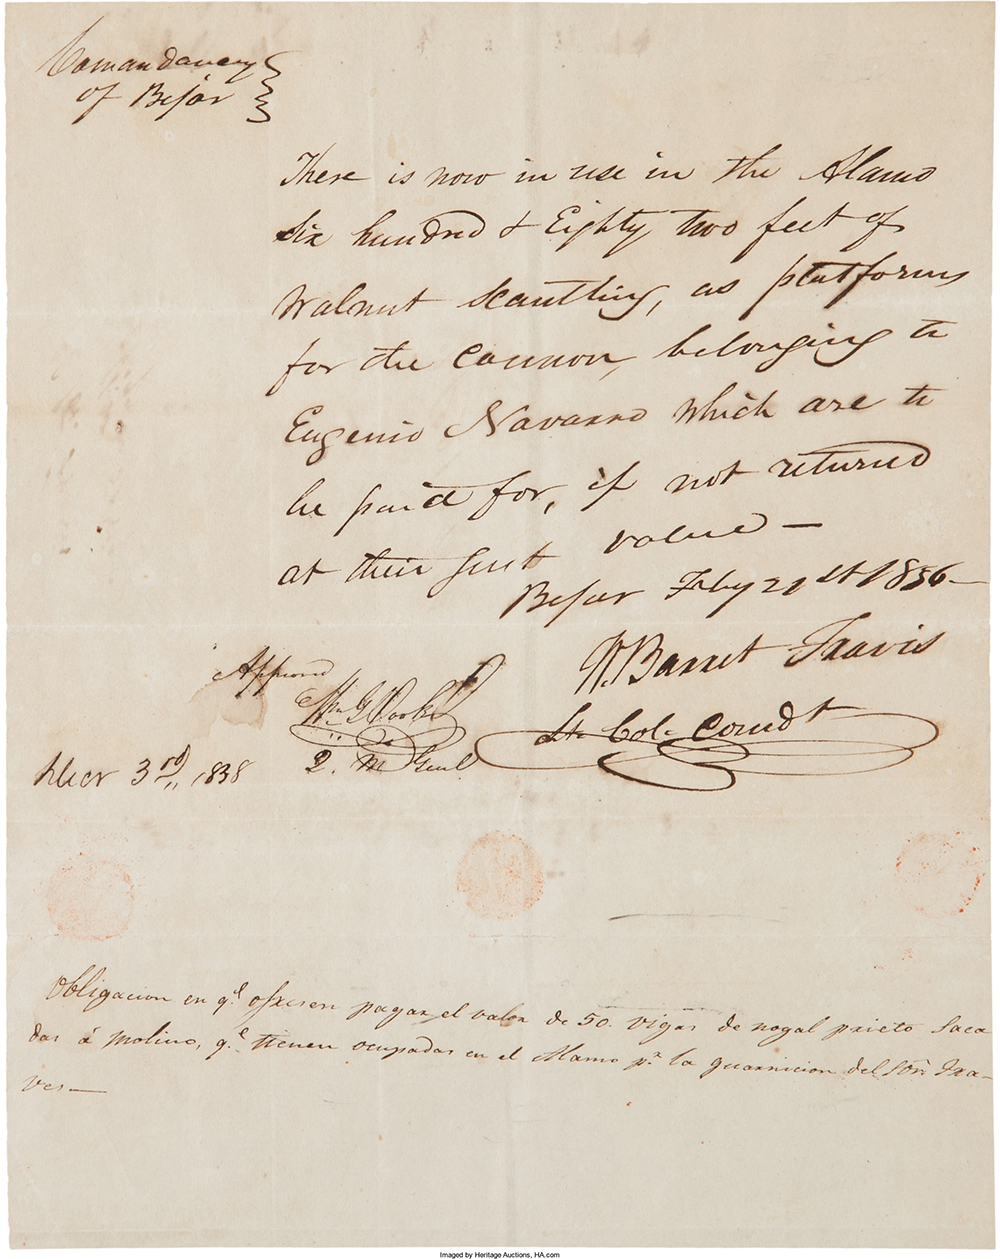 Comandancy
of Bejar
There is now in use in the Alamo
six hundred & Eighty two feet of
Walnut scantling, as platforms
for the Cannon, belonging to
Eugenio Navarro which are to
be paid for, if not returned
at their just value —
Bejar Feby 21st 1836 —
W. Barret Travis
Lt. Col. Comdt
Approved
Wm G Cooke
Q. M Genl.
Decr 3rd, 1838
Obligacion en qe. ofresen pagar el valor de 50. vigas de nogal prieto saca
das á molino, qe. tienen ocupadas en el Alamo pa. la guarnicion del Sōr. Tra-
ves —
Imaged by Heritage Auctions, HA.com